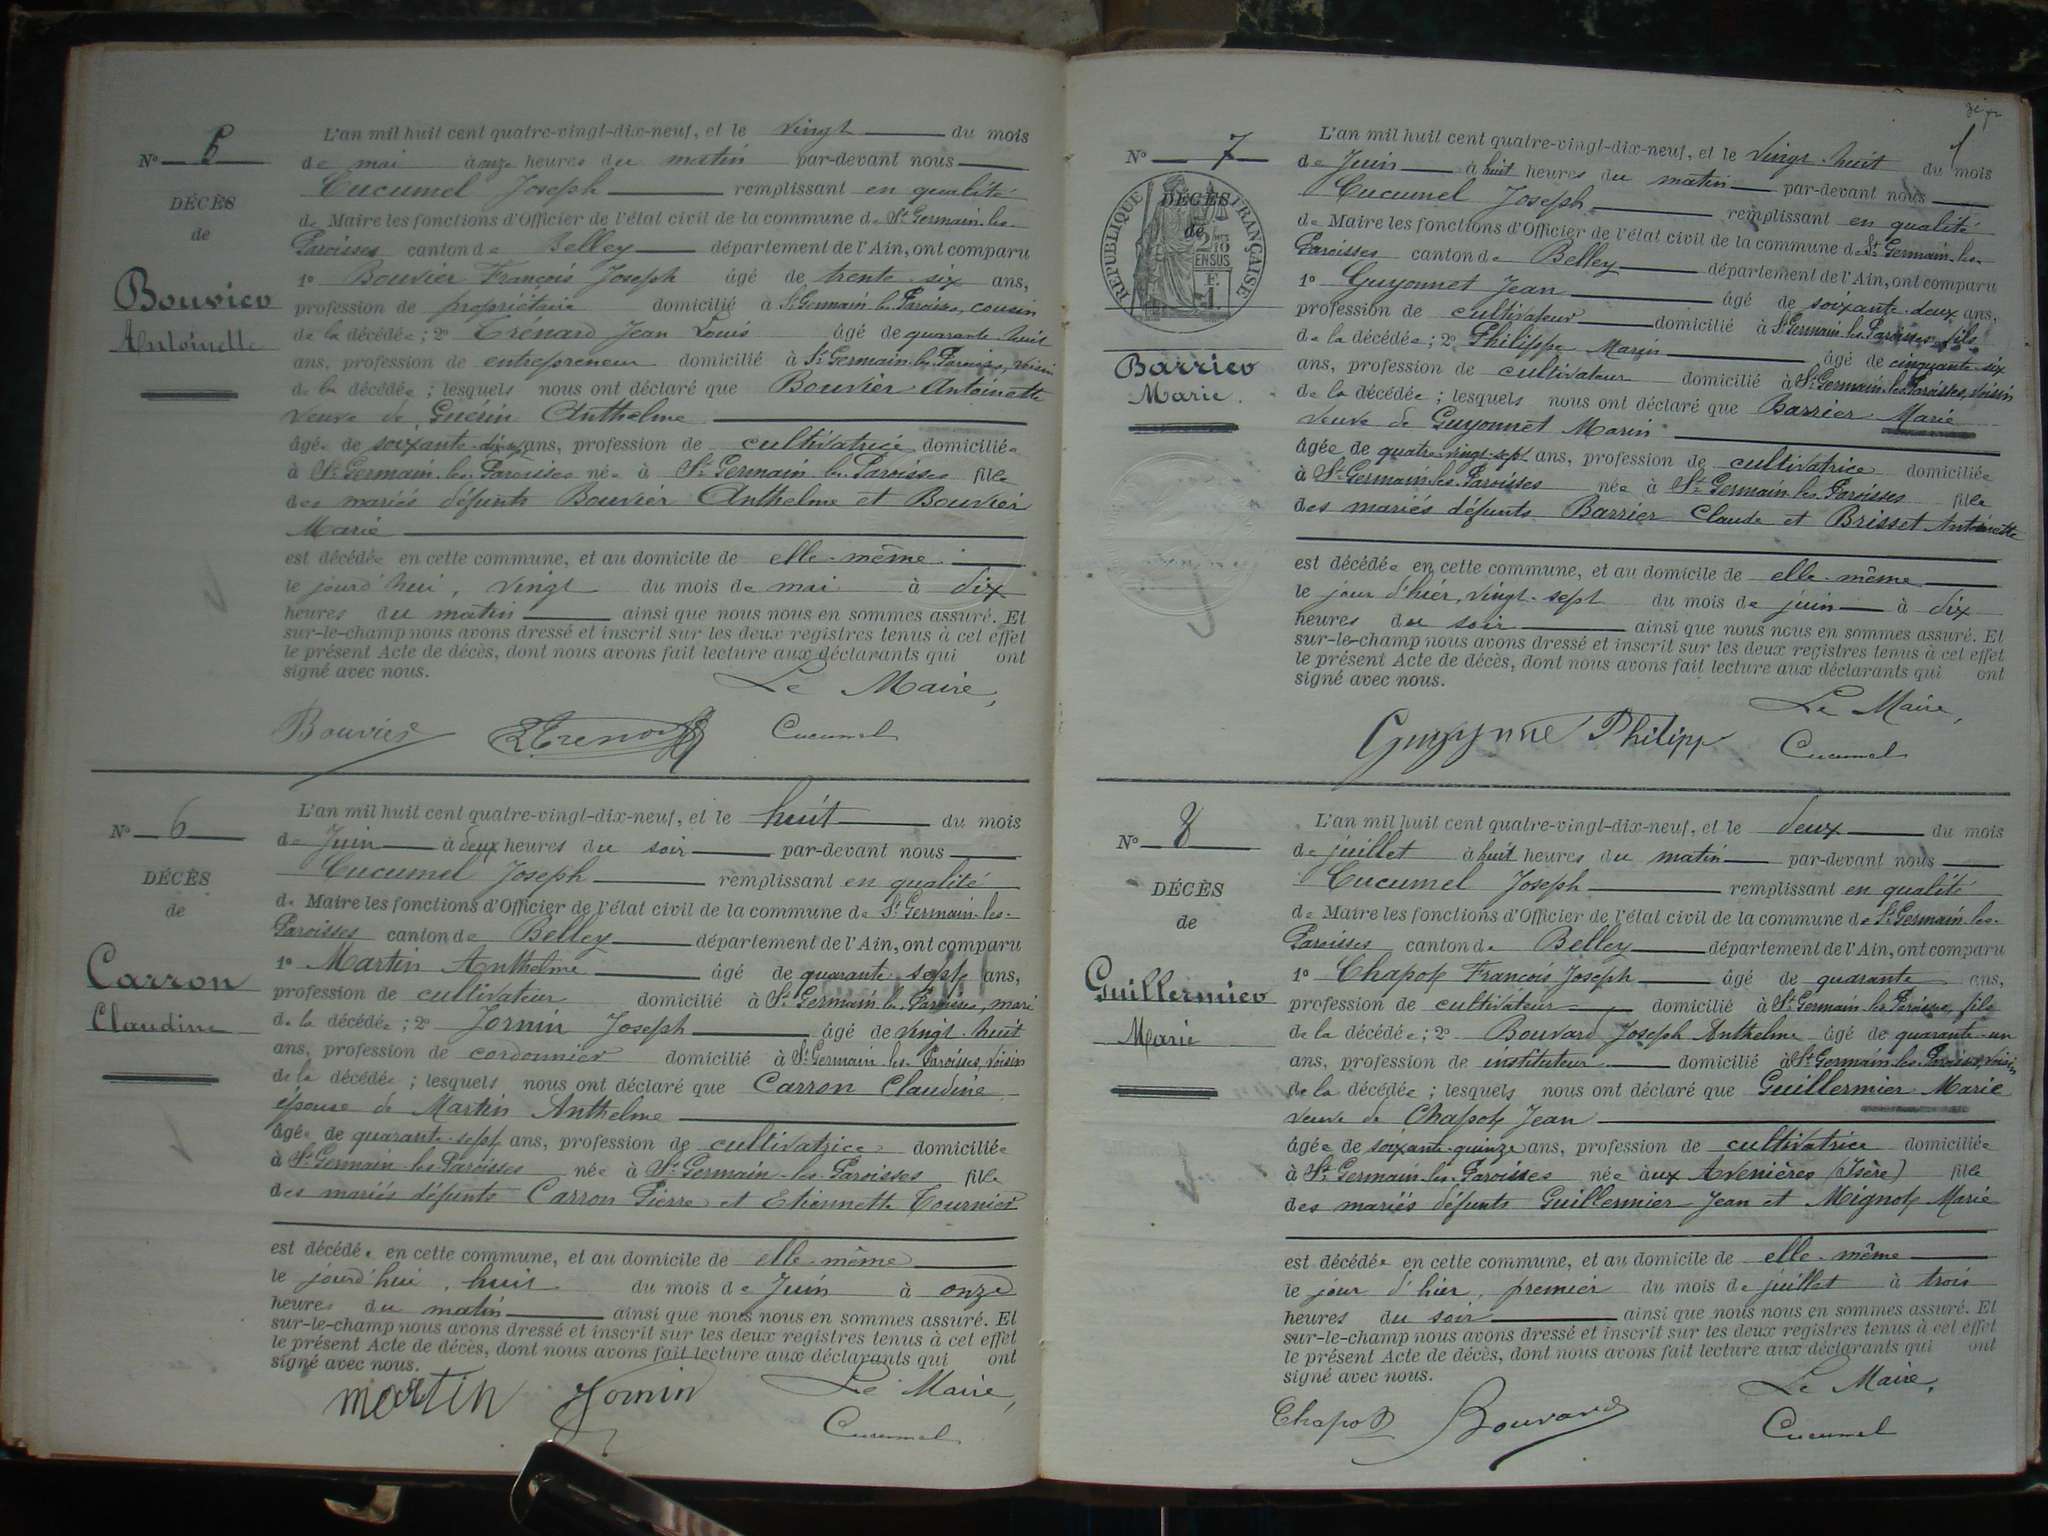 N° 5
DÉCÈS
de
Bouvier
Antoinette
L'an mil huit cent quatre-vingt-dix-neuf, et le vingt du mois
de mai à onze heures du matin par-devant nous
Cucumel Joseph remplissant en qualité
de Maire les fonctions d'Officier de l'état civil de la commune de St Germain-les-
Paroisses canton de Belley département de l'Ain, ont comparu
1° Bouvier François Joseph âgé de trente-six ans,
profession de propriétaire domicilié à St Germain-les-Paroisses, cousin
de la décédée; 2° Trenard Jean Louis âgé de quarante huit
ans, profession de entrepreneur domicilié à St Germain-les-Paroisses, voisin
de la décédée; lesquels nous ont déclaré que Bouvier Antoinette
veuve de Guerin Anthelme
âgée de soixante-dix ans, profession de cultivatrice domiciliée
à St Germain-les-Paroisses née à St Germain-les-Paroisses fille
des mariés défunts Bouvier Anthelme et Bouvier
Marie
est décédée en cette commune, et au domicile de elle-même
le jourd'hui, vingt du mois de mai à dix
heures du matin ainsi que nous nous en sommes assuré. Et
sur-le-champ nous avons dressé et inscrit sur les deux registres tenus à cet effet
le présent Acte de décès, dont nous avons fait lecture aux déclarants qui ont
signé avec nous.
Le Maire,
Bouvier Trenard Cucumel
N° 6
DÉCÈS
de
Carron
Claudine
L'an mil huit cent quatre-vingt-dix-neuf, et le huit du mois
de Juin à deux heures du soir par-devant nous
Cucumel Joseph remplissant en qualité
de Maire les fonctions d'Officier de l'état civil de la commune de St Germain-les-
Paroisses canton de Belley département de l'Ain, ont comparu
1° Martin Anthelme âgé de quarante sept ans,
profession de cultivateur domicilié à St Germain-les-Paroisses, mari
de la décédée; 2° Jornin Joseph âgé de vingt-huit
ans, profession de cordonnier domicilié à St Germain-les-Paroisses, voisin
de la décédée; lesquels nous ont déclaré que Carron Claudine
épouse de Martin Anthelme
âgée de quarante-sept ans, profession de cultivatrice domiciliée
à St Germain-les-Paroisses née à St Germain-les-Paroisses fille
des mariés défunts Carron Pierre et Etiennette Tournier
est décédée en cette commune, et au domicile de elle-même
le jourd'hui, huit du mois de Juin à onze
heures du matin ainsi que nous nous en sommes assuré. Et
sur-le-champ nous avons dressé et inscrit sur les deux registres tenus à cet effet
le présent Acte de décès, dont nous avons fait lecture aux déclarants qui ont
signé avec nous.
Le Maire,
martin Jornin Cucumel
N° 7
DÉCÈS
de
RÉPUBLIQUE FRANÇAISE
2 10mes
EN SUS
Barrier
Marie.
L'an mil huit cent quatre-vingt-dix-neuf, et le vingt-huit du mois
de Juin à huit heures du matin par-devant nous
Cucumel Joseph remplissant en qualité
de Maire les fonctions d'Officier de l'état civil de la commune de St Germain-les-
Paroisses canton de Belley département de l'Ain, ont comparu
1° Guyonnet Jean âgé de soixante-deux ans,
profession de cultivateur domicilié à St Germain-les-Paroisses, fils
de la décédée; 2° Philippe Marin âgé de cinquante-six
ans, profession de cultivateur domicilié à St Germain-les-Paroisses, voisin
de la décédée; lesquels nous ont déclaré que Barrier Marie
veuve de Guyonnet Marin
âgée de quatre-vingt-sept ans, profession de cultivatrice domiciliée
à St Germain-les-Paroisses née à St Germain-les-Paroisses fille
des mariés défunts Barrier Claude et Brisset Antoinette
est décédée en cette commune, et au domicile de elle-même
le jour d'hier, vingt-sept du mois de juin à dix
heures du soir ainsi que nous nous en sommes assuré. Et
sur-le-champ nous avons dressé et inscrit sur les deux registres tenus à cet effet
le présent Acte de décès, dont nous avons fait lecture aux déclarants qui ont
signé avec nous.
Le Maire,
Philippe Cucumel
N° 8
DÉCÈS
de
Guillermier
Marie
L'an mil huit cent quatre-vingt-dix-neuf, et le deux du mois
de juillet à huit heures du matin par-devant nous
Cucumel Joseph remplissant en qualité
de Maire les fonctions d'Officier de l'état civil de la commune de St Germain-les-
Paroisses canton de Belley département de l'Ain, ont comparu
1° Chapot François Joseph âgé de quarante ans,
profession de cultivateur domicilié à St Germain-les-Paroisses, fils
de la décédée; 2° Bouvard Joseph Anthelme âgé de quarante-un
ans, profession de instituteur domicilié à St Germain-les-Paroisses, voisin
de la décédée; lesquels nous ont déclaré que Guillermier Marie
veuve de Chapot Jean
âgée de soixante-quinze ans, profession de cultivatrice domiciliée
à St Germain-les-Paroisses née aux Avenières (Isère) fille
des mariés défunts Guillermier Jean et Mignot Marie
est décédée en cette commune, et au domicile de elle-même
le jour d'hier, premier du mois de juillet à trois
heures du soir ainsi que nous nous en sommes assuré. Et
sur-le-champ nous avons dressé et inscrit sur les deux registres tenus à cet effet
le présent Acte de décès, dont nous avons fait lecture aux déclarants qui ont
signé avec nous.
Le Maire,
Chapot Bouvard Cucumel